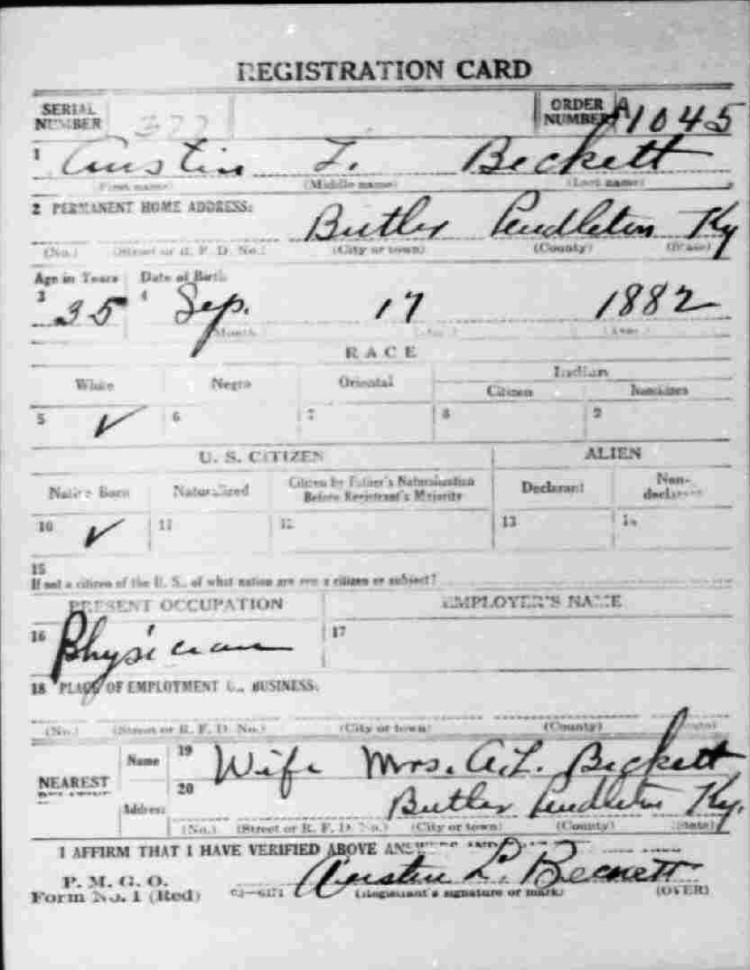 REGISTRATION CARD
SERIAL NUMBER 377 ORDER NUMBER A1045
1 Austin L. Beckett
(First name) (Middle name) (Last name)
2 PERMANENT HOME ADDRESS: Butler Pendleton Ky
(No.) (Street or R. F. D. No.) (City or town) (County) (State)
Age in Years Date of Birth
3 35 4 Sep. 17 1882
(Month) (Day) (Year)
RACE
White Negro Oriental Indian
Citizen Noncitizen
5 ✓ 6 7 8 9
U. S. CITIZEN ALIEN
Native Born Naturalized Citizen by Father's Naturalization Before Registrant's Majority Declarant Non-declarant
10 ✓ 11 12 13 14
15
If not a citizen of the U. S., of what nation are you a citizen or subject?
PRESENT OCCUPATION EMPLOYER'S NAME
16 Physician 17
18 PLACE OF EMPLOYMENT OR BUSINESS:
(No.) (Street or R. F. D. No.) (City or town) (County) (State)
NEAREST Name 19 Wife Mrs. A.L. Beckett
Address 20 Butler Pendleton Ky.
(No.) (Street or R. F. D. No.) (City or town) (County) (State)
I AFFIRM THAT I HAVE VERIFIED ABOVE ANSWERS AND
P. M. G. O.
Form No. 1 (Red) 03—6171 Austin L. Beckett
(Registrant's signature or mark) (OVER)